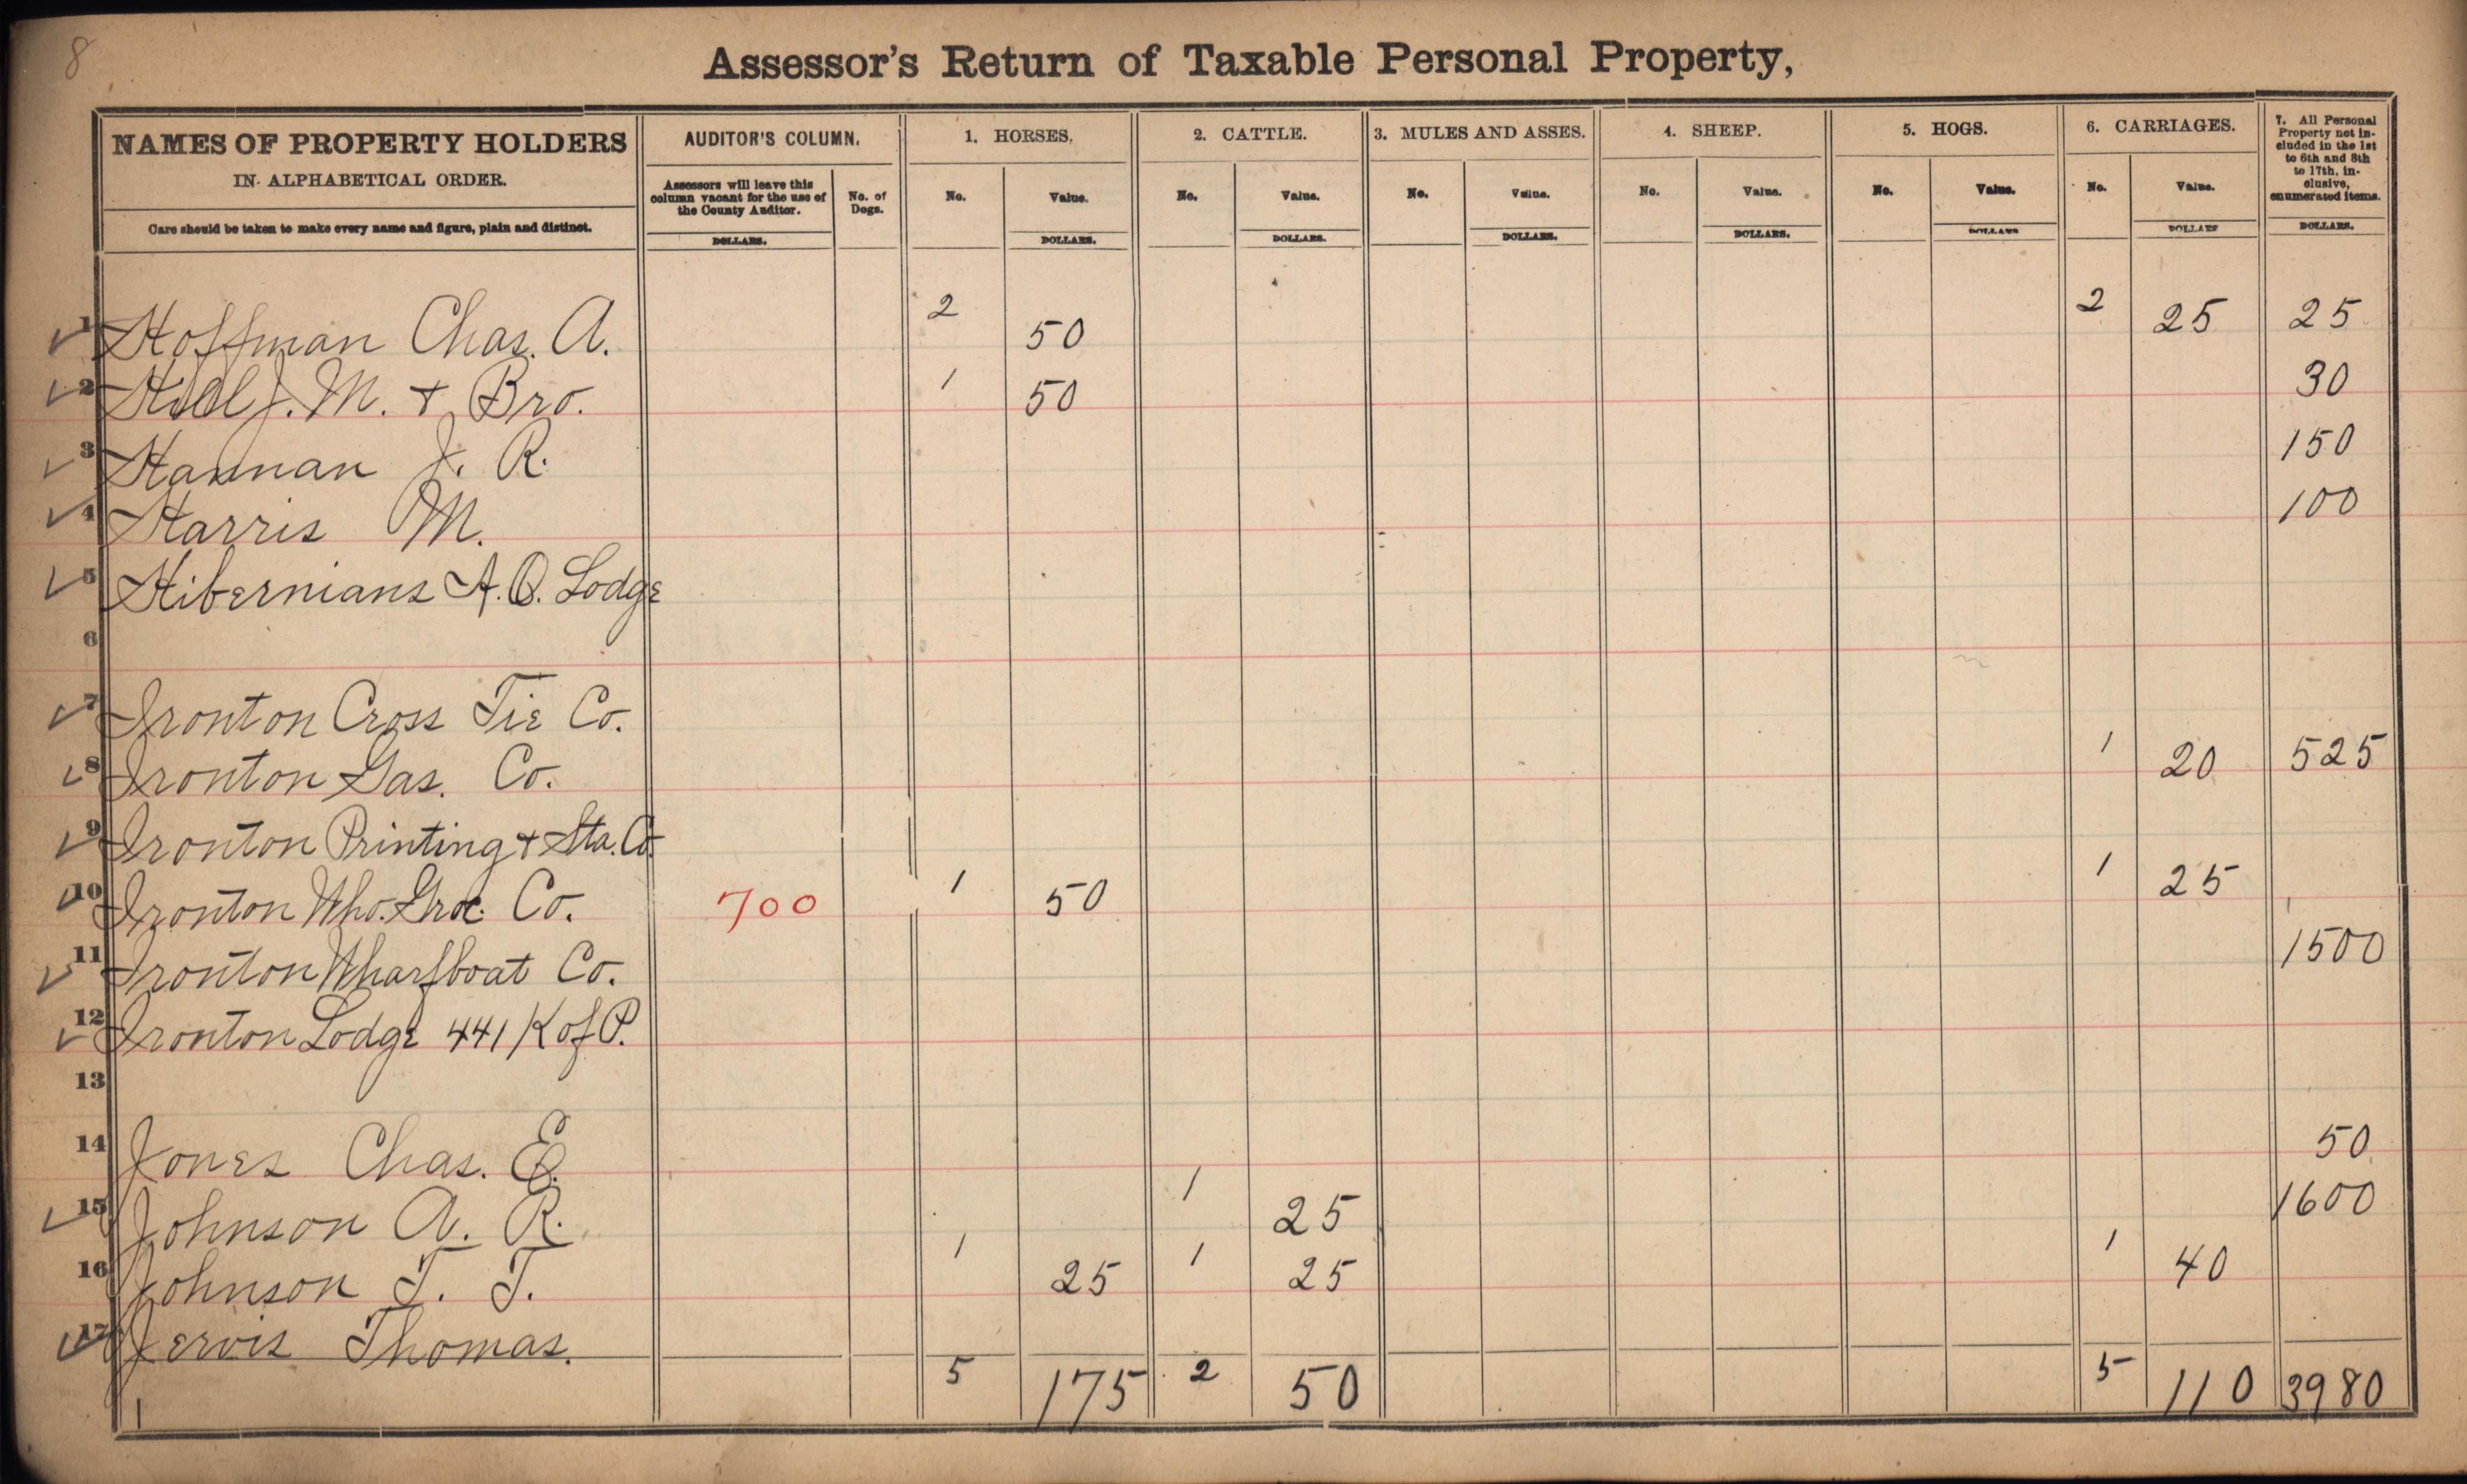 8
Assessor's Return of Taxable Personal Property,
NAMES OF PROPERTY HOLDERS
IN ALPHABETICAL ORDER.
Care should be taken to make every name and figure, plain and distinct.
AUDITOR'S COLUMN.
Assessors will leave this column vacant for the use of the County Auditor.
DOLLARS.
No. of Dogs.
1. HORSES.
No. Value.
DOLLARS.
2. CATTLE.
No. Value.
DOLLARS.
3. MULES AND ASSES.
No. Value.
DOLLARS.
4. SHEEP.
No. Value.
DOLLARS.
5. HOGS.
No. Value.
DOLLARS
6. CARRIAGES.
No. Value.
DOLLARS
7. All Personal
Property not in-
cluded in the 1st
to 6th and 8th
to 17th, in-
clusive,
enumerated items.
DOLLARS.
1 Hoffman Chas. A. 2 50 2 25 25
2 Hill J. M. + Bro. 1 50 30
3 Hannan J. R. 150
4 Harris M. 100
5 Hibernians A. O. Lodge
6
7 Ironton Cross Tie Co.
8 Ironton Gas. Co. 1 20 525
9 Ironton Printing + Sta. Co.
10 Ironton Who. Groc. Co. 700 1 50 1 25
11 Ironton Wharfboat Co. 1500
12 Ironton Lodge 441 K of P.
13
14 Jones Chas. E. 50
15 Johnson A. R. 1 25 1600
16 Johnson T. T. 1 25 1 25 1 40
17 Jervis Thomas.
5 175 2 50 5 110 3980